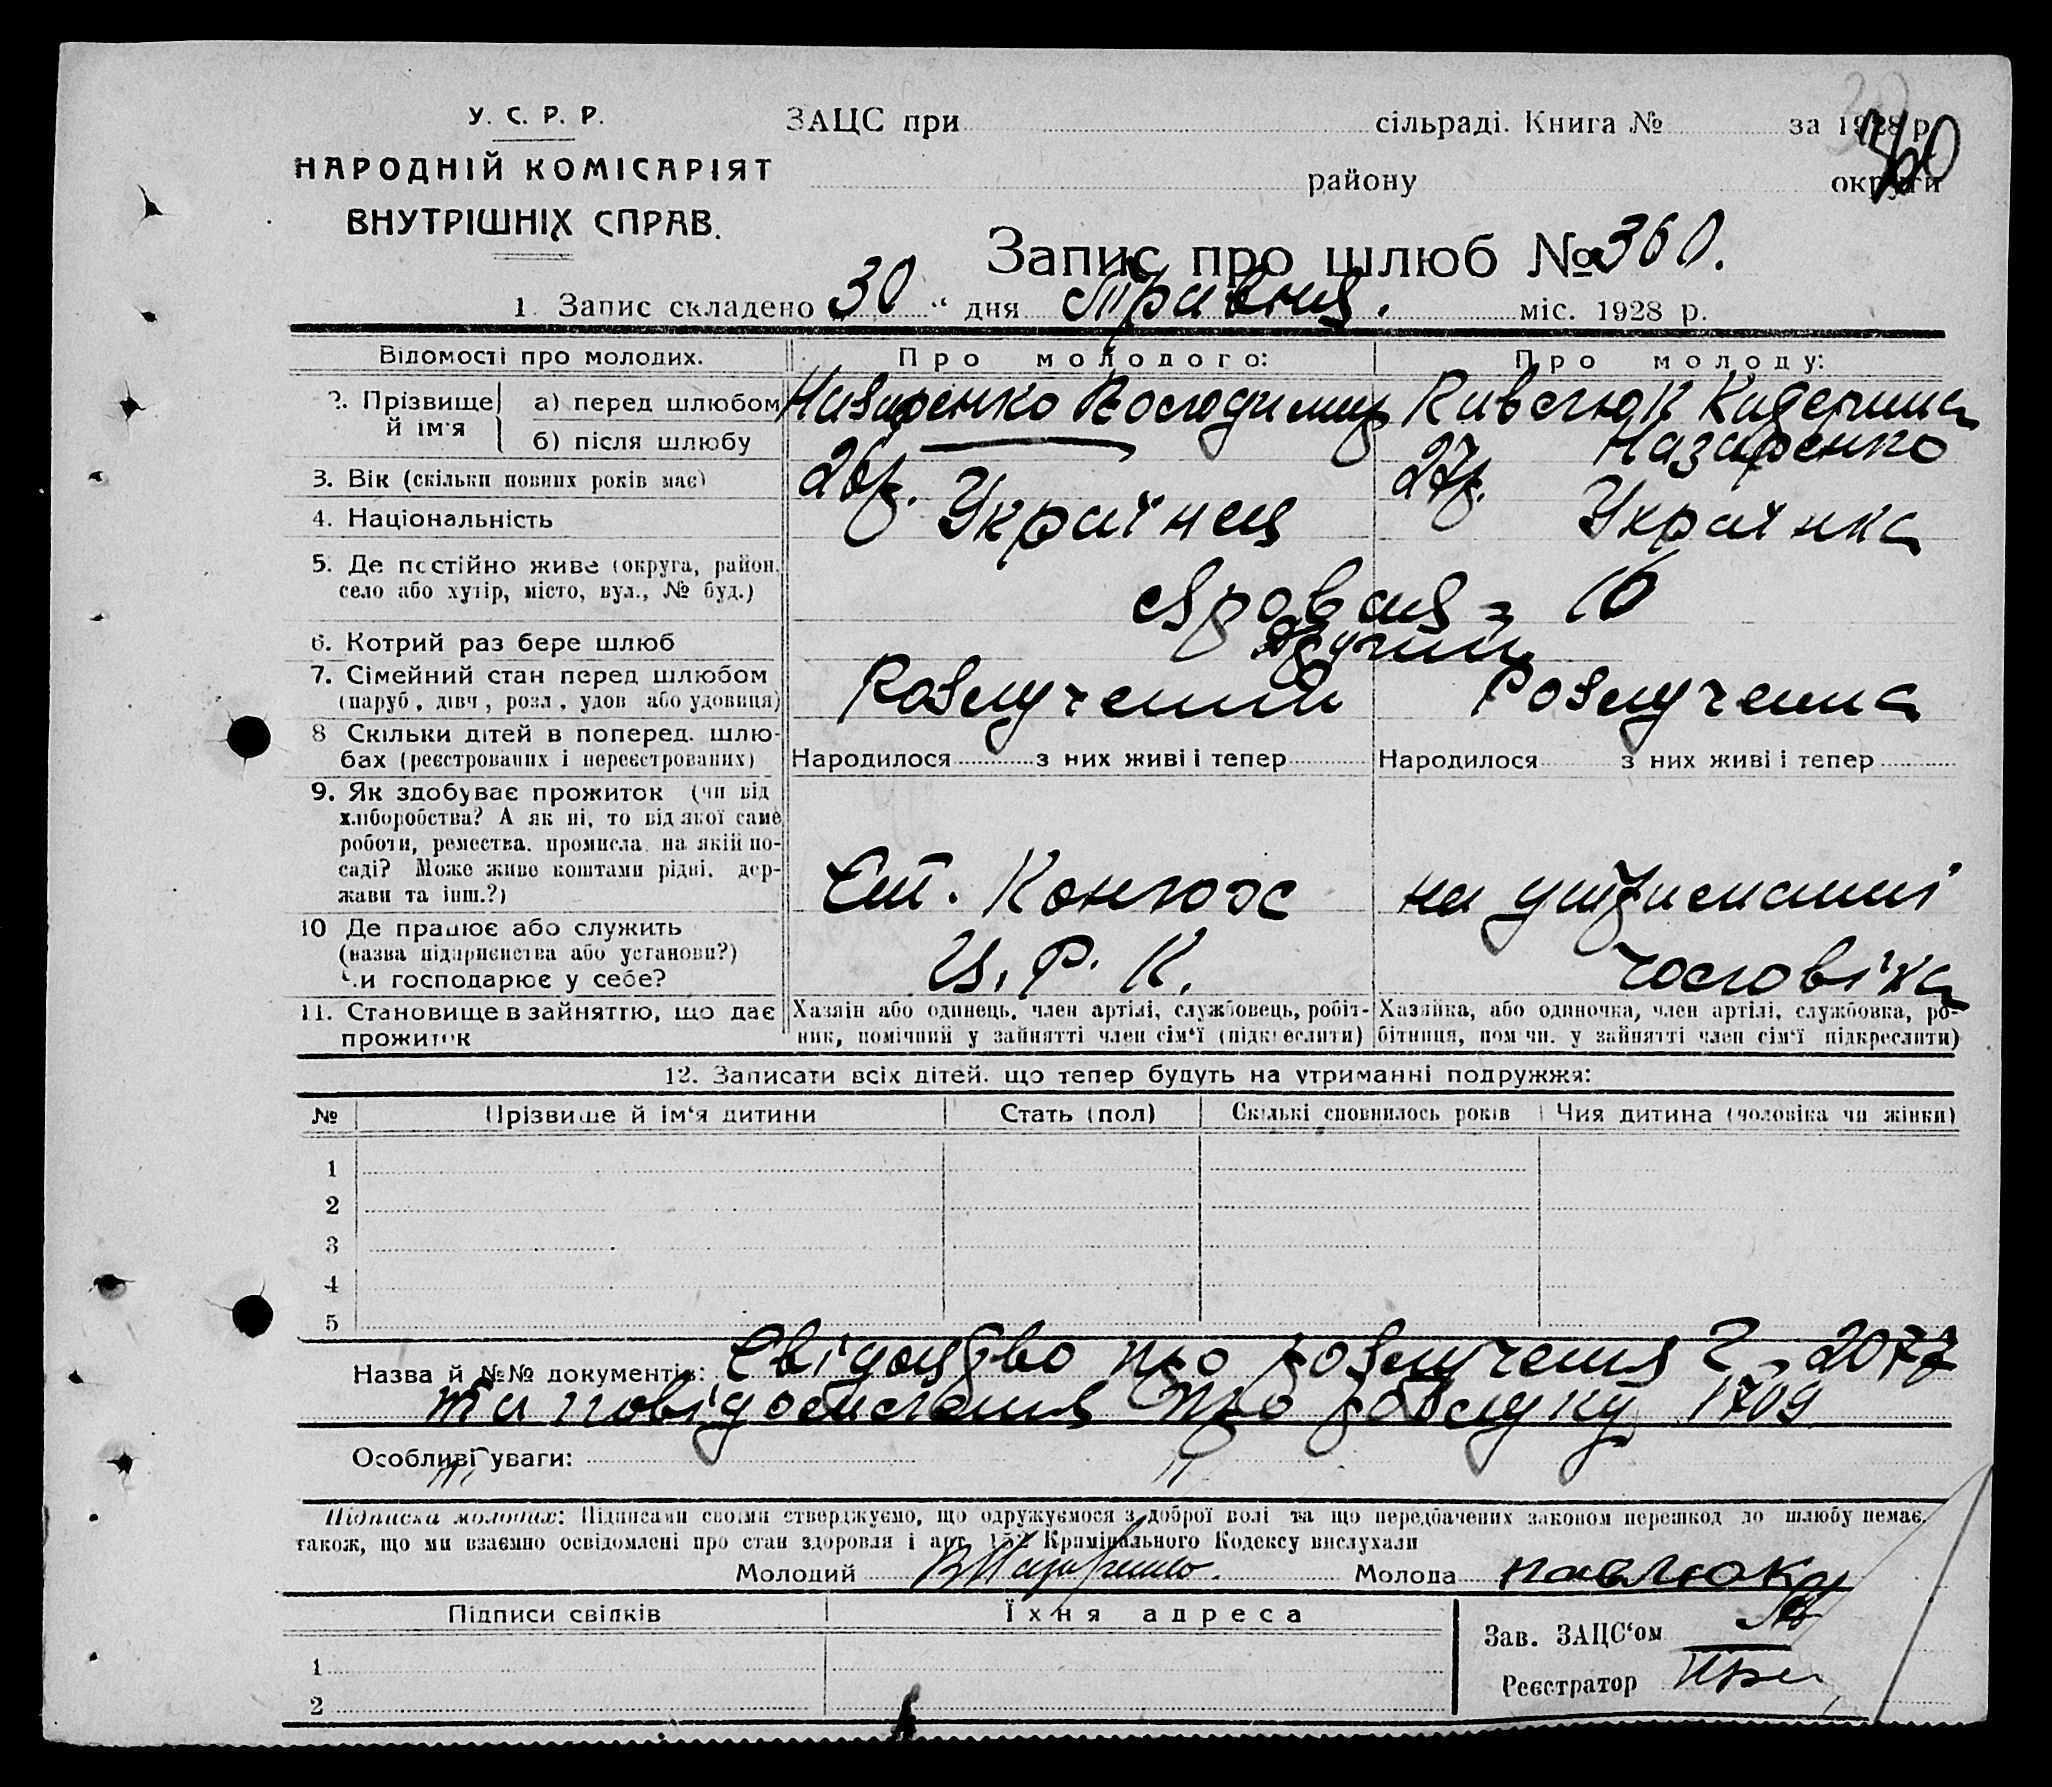 У. С. Р. Р.
НАРОДНІЙ КОМІСАРІЯТ
ВНУТРІШНІХ СПРАВ.
ЗАЦС при сільраді. Книга № за 1928 р.
району округи
Запис про шлюб № 360.
1. Запис складено 30 " дня Травня. міс. 1928 р.
Відомості про молодих. Про молодого: Про молоду:
2. Прізвище й ім'я а) перед шлюбом Назаренко Володимир
б) після шлюбу Назаренко
3. Вік (скільки повних років має) 26 р. 27 р.
4. Національність Українец Українка
5. Де постійно живе (округа, район, село або хутір, місто, вул., № буд.) 16
6. Котрий раз бере шлюб другий
7. Сімейний стан перед шлюбом (паруб., дівч., розл., удов. або удовиця) Розлучений Розлучена
8 Скільки дітей в поперед. шлюбах (реєстрованих і нереєстрованих) Народилося з них живі і тепер Народилося з них живі і тепер
9. Як здобуває прожиток (чи від хліборобства? А як ні, то від якої саме роботи, ремества, промисла, на якій посаді? Може живе коштами рідні, держави та інш.?) Ст. Конюх на утриманні
10 Де працює або служить (назва підприємства або установи?) Чи господарює у себе? Ц. Р. К. чоловіка
11. Становище в зайняттю, що дає прожиток
Хазяїн або одинець, член артілі, службовець, робітник, помічний у зайнятті член сім'ї (підкреслити)
Хазяйка, або одиночка, член артілі, службовка, робітниця, помічн. у зайнятті член сім'ї підкреслити)
12. Записати всіх дітей, що тепер будуть на утриманні подружжя:
№ Прізвище й ім'я дитини Стать (пол) Скількі сповнилось років Чия дитина (чоловіка чи жінки)
1
2
3
4
5
Назва й №№ документів: Свідоцтво про розлучення 2077
та повідомлення про розлуку 1709
Особливі уваги:
Підписка молодих: Підписами своїми стверджуємо, що одружуємося з доброї волі та що передбачених законом перешкод до шлюбу немає,
також, що ми взаємно освідомлені про стан здоровля і арт. 152 Кримінального Кодексу вислухали
Молодий В Назаренко. Молода павлюк
Підписи свідків Їхня адреса
Зав. ЗАЦС'ом
1
Реєстратор
2